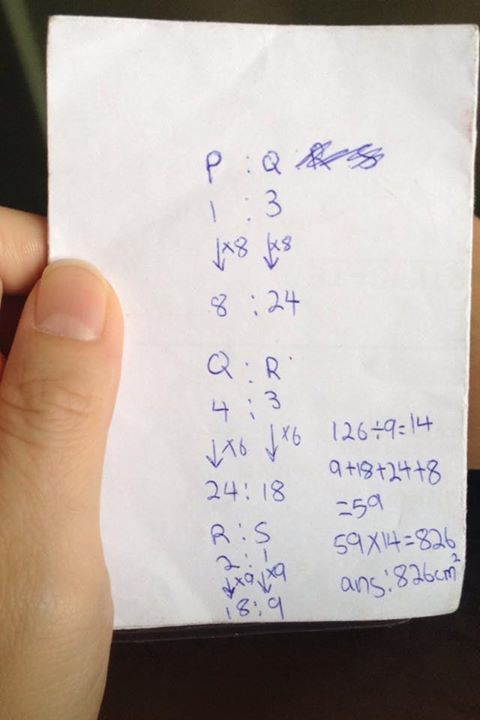 P : Q
1 : 3
↓×8 ↓×8
8 : 24
Q : R
4 : 3
↓×6 ↓×6
24 : 18
R : S
2 : 1
↓×9 ↓×9
18 : 9
126÷9=14
9+18+24+8
=59
59×14=826
ans: 826cm²